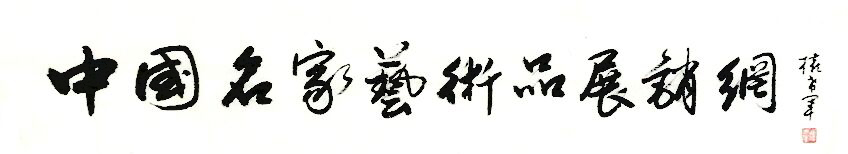 中國名家藝術品展銷網